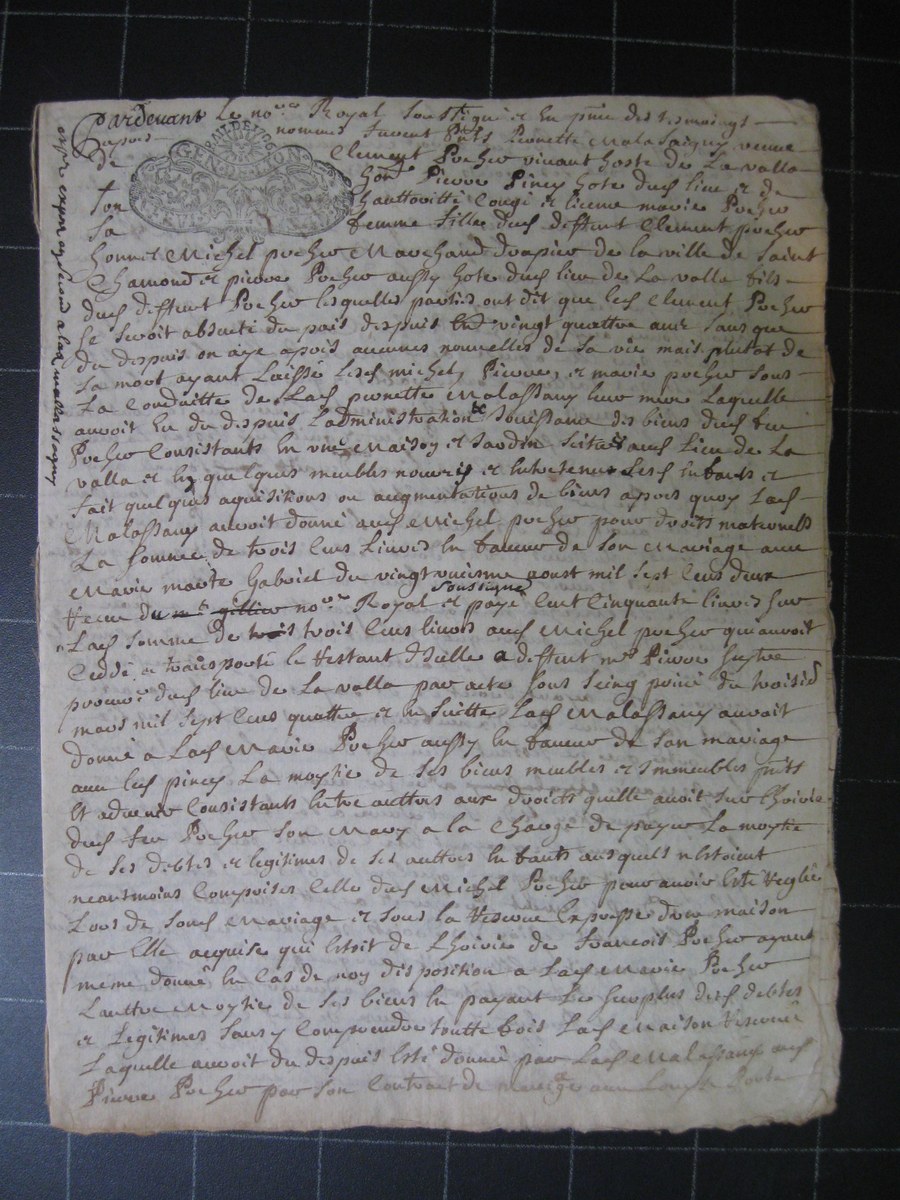 Pardevant Le nore Royal soussigné et En pnce des tesmoings
apres nommes furent pnts Pernette Malassagny veuve
de Clement Pocher vivant hoste de La valla
honr Pierre Piney hote dud lieu et de
son hauthorité Congé et licence marie Pocher
sa femme fille dud deffunt Clement pocher
honnet Michel pocher Marchand drapier de la ville de saint
Chamond et pierre Pocher aussy hote dud lieu de La valla fils
dud deffunt Pocher lesquelles parties ont dit que led Clement Pocher
se seroit absenté du pais despuis vingt quattre ans sans que
du despuis on aye apris aucunes nouvelles de sa vie mais plutot de
sa mort ayant Laissé Lesd michel, Pierre, et marie pocher sous
La Conduitte de Lad pernette Malassany leur mere Laquelle
auroit Eu du despuis L'administration et Jouissance des biens dud feu
Pocher Consistants En une Maison et Jardin scitués aud Lieu de La
valla et En quelques meubles nourris et Entretenus Lesd Enfants et
fait quelques aquisitions ou augmentations de biens apres quoy Lad
Malassany auroit donné aud Michel pocher pour droits maternels
La somme de trois Cens Livres En faveur de son Mariage avec
Marie marte Gabriel du vingt uniesme aoust mil sept Cens deux
Receu du me gillier nore Royal soussigné et payé Cent Cinquante livres sur
Lad somme de trois trois Cens livres aud Michel pocher qui auroit
Ceddé, et transporté le Restant d'Icelle a deffunt me Pierre
procur dud lieu de La valla par acte sous seing privé du troisie
mars mil sept Cens quattre et En suitte Lad Malassany auroit
donné a Lad Marie Pocher aussy En faveur de son mariage
avec led piney La moytié de ses biens meubles et Immeubles pnts
Et advenir Consistants Entre auttres aux droits quelle avoit sur lhoirie
dud feu Pocher son Mary a la Charge de payer La moytié
de ses debtes et legitimes de ses auttres Enfants ausquels nestoient
neantmoins Comprises Celle dud Michel Pocher pour avoir Esté Reglée
Lors de soud Mariage et sous la Reserve Expresse dune maison
par Elle acquise qui Estoit de Lhoirie de francois Pocher ayant
meme donné En Cas de non disposition a Lad Marie Pocher
Lauttre Moytié de ses biens En payant Le surplus desd debtes
et Legitimes sans y Comprendre touttefois Lad Maison Reservée
Laquelle auroit du despuis Esté donnée par Lad Malassany aud
Pierre Pocher par son Contract de mariage avec
GEN DE LYON